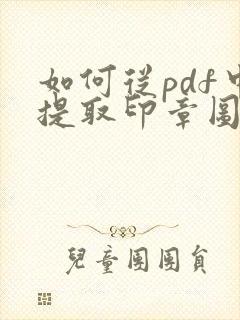 如何從pdf中
提取印章圖
兒童團團員